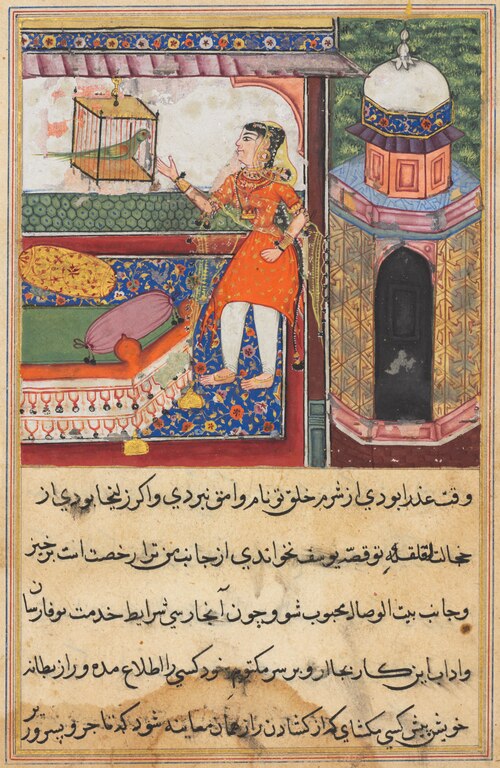 وقت عذرا بودی از شرم خلق تو نام وامق نبردی واکر زلیخا بودی از
خجالت لقلقه تو قصه یوسف نخواندی از جانب من ترا رخصت است برخیز
وجانب بیت الوصال محبوب شو و چون آنجا رسی شرایط خدمت
واداب این کار بجا ار و بر سر مکتوم خود کسی را اطلاع مده و راز
خویش پیش کسی مکشای که از کشادن راز همان معاینه شود که تاجر و پسر